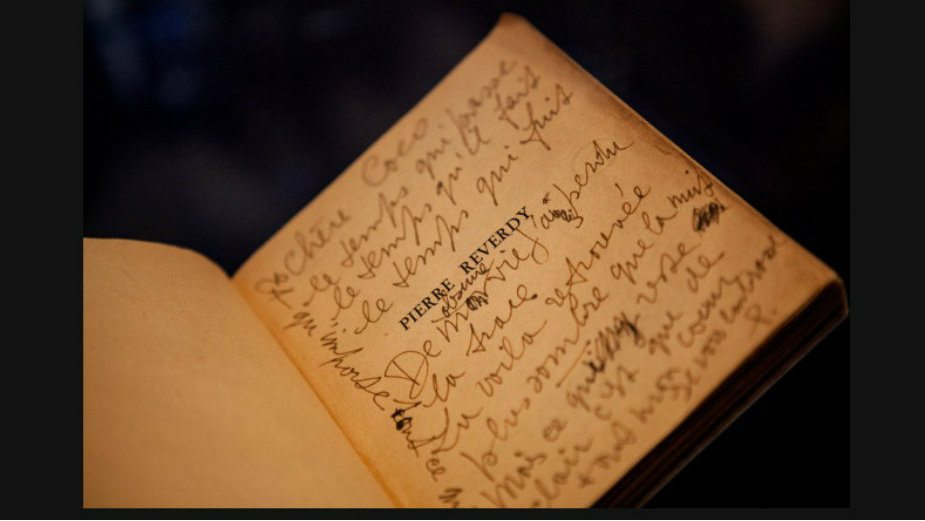 Chère Coco
le temps qui passe
le temps qu'il fait
le temps qui fuit
PIERRE REVERDY
De obscure vie j'ai perdu
la trace retrouvée
plus sombre que la nuit
Mais ce qui
clair c'est que de cœur
tout vous
P.
qu'importe tout ce